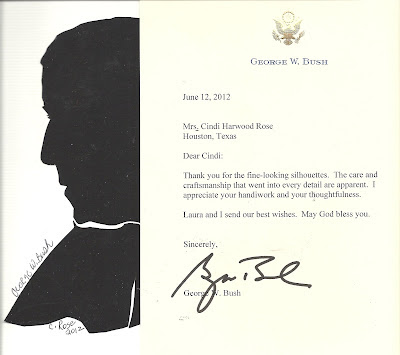 GEORGE W. BUSH
June 12, 2012
Mrs. Cindi Harwood Rose
Houston, Texas
Dear Cindi:
Thank you for the fine-looking silhouettes. The care and
craftsmanship that went into every detail are apparent. I
appreciate your handiwork and your thoughtfulness.
Laura and I send our best wishes. May God bless you.
Sincerely,
George W. Bush
George W. Bush
C. Rose
2012